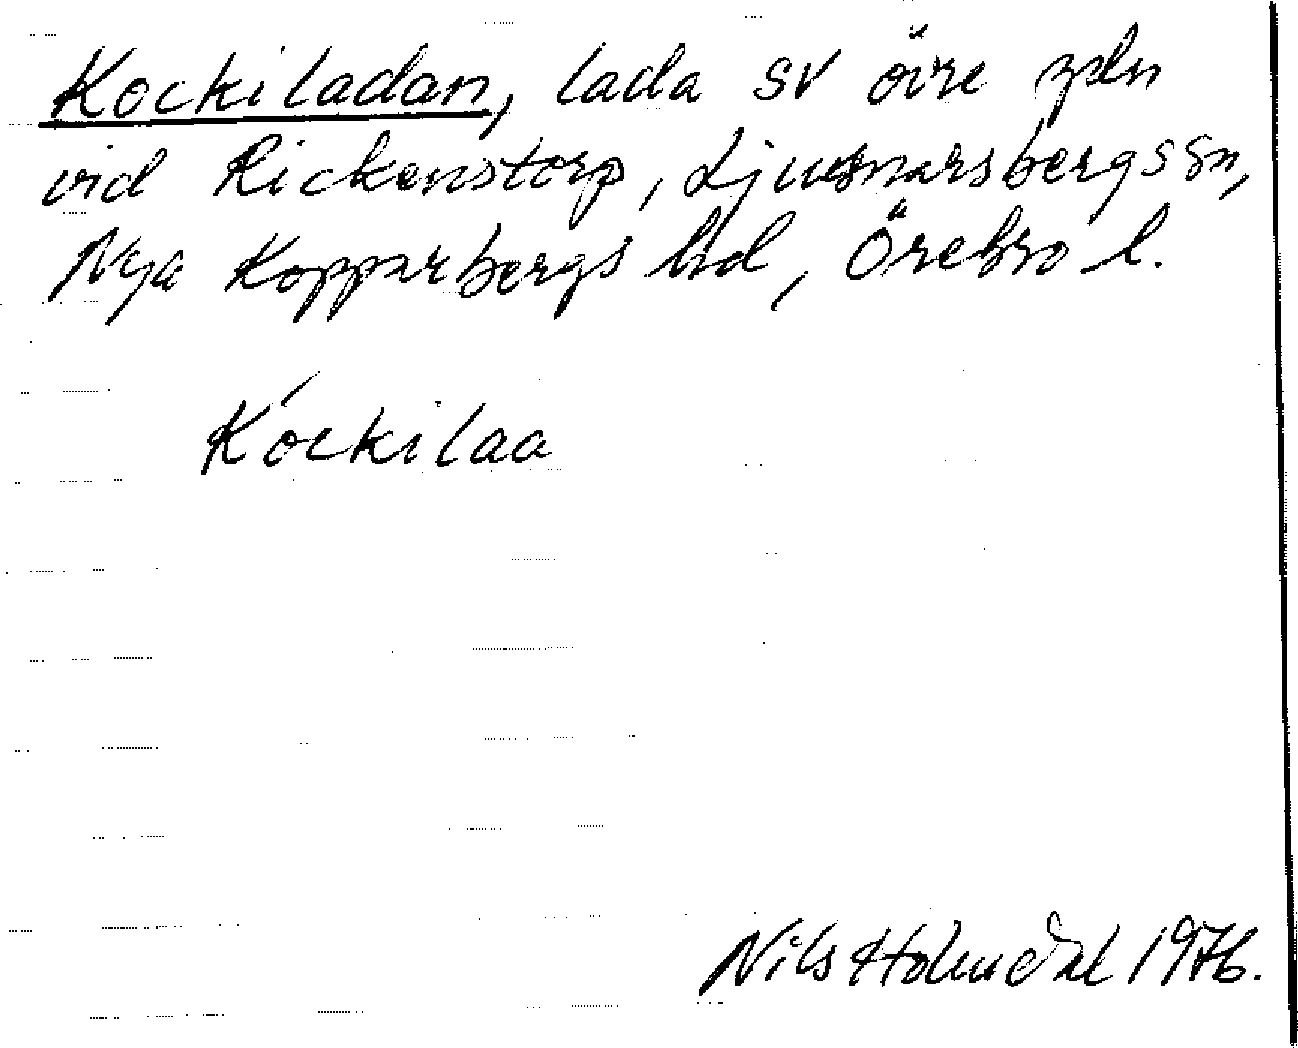 Kockiladan, lada SV övre gdn
vid Rickenstorp, Ljusnarsbergs sn,
Nya Kopparbergs hd, Örebro l.
Kóckilaa
Nils Holmdal 1976.